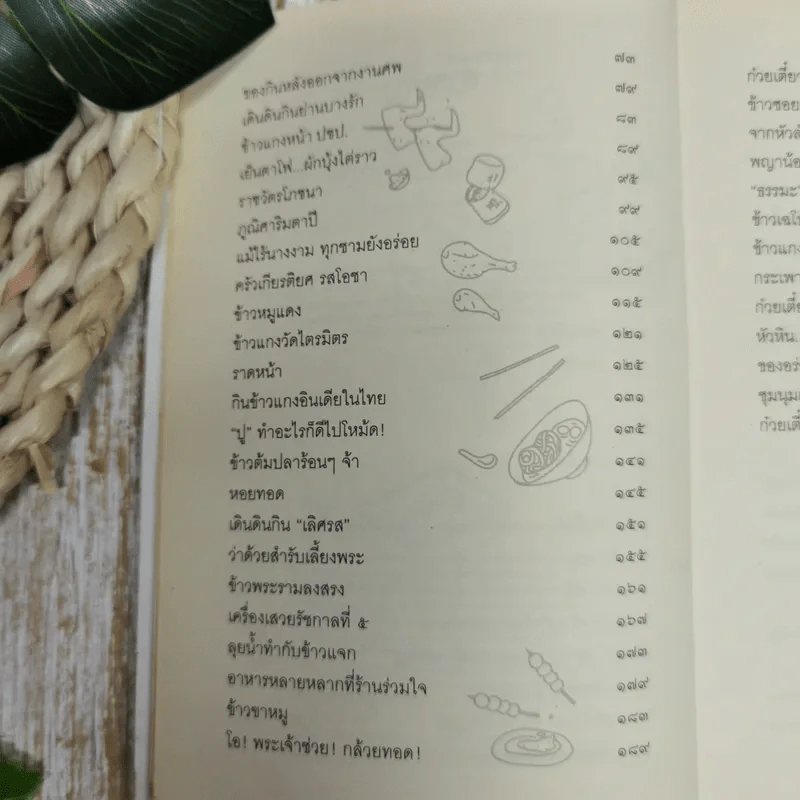 ของกินหลังออกจากงานศพ ๗๓
เดินดินกินย่านบางรัก ๗๙
ข้าวแกงหน้า ปชป. ๘๓
เย็นตาโฟ...ผักบุ้งไต่ราว ๘๙
ราชวัตรโภชนา ๙๕
ภูณิศาริมตาปี ๙๙
แม้ไร้นางงาม ทุกชามยังอร่อย ๑๐๕
ครัวเกียรติยศ รสโอชา ๑๐๙
ข้าวหมูแดง ๑๑๕
ข้าวแกงวัดไตรมิตร ๑๒๑
ราดหน้า ๑๒๕
กินข้าวแกงอินเดียในไทย ๑๓๑
"ปู" ทำอะไรก็ดีไปโหม้ด! ๑๓๕
ข้าวต้มปลาร้อนๆ จ้า ๑๔๑
หอยทอด ๑๔๕
เดินดินกิน "เลิศรส" ๑๕๑
ว่าด้วยสำรับเลี้ยงพระ ๑๕๕
ข้าวพระรามลงสรง ๑๖๑
เครื่องเสวยรัชกาลที่ ๕ ๑๖๗
ลุยน้ำทำกับข้าวแจก ๑๗๓
อาหารหลายหลากที่ร้านร่วมใจ ๑๗๙
ข้าวขาหมู ๑๘๓
โอ! พระเจ้าช่วย! กล้วยทอด! ๑๘๙
ก๋วยเตี๋ยว
ข้าวซอย
จากหัวลำ
พญาน้อย
"ธรรมะ
ข้าวเฉโ
ข้าวแกง
กระเพา
ก๋วยเตี๋ย
หัวหิน..
ของอร่
ชุมนุม
ก๋วยเตี๋